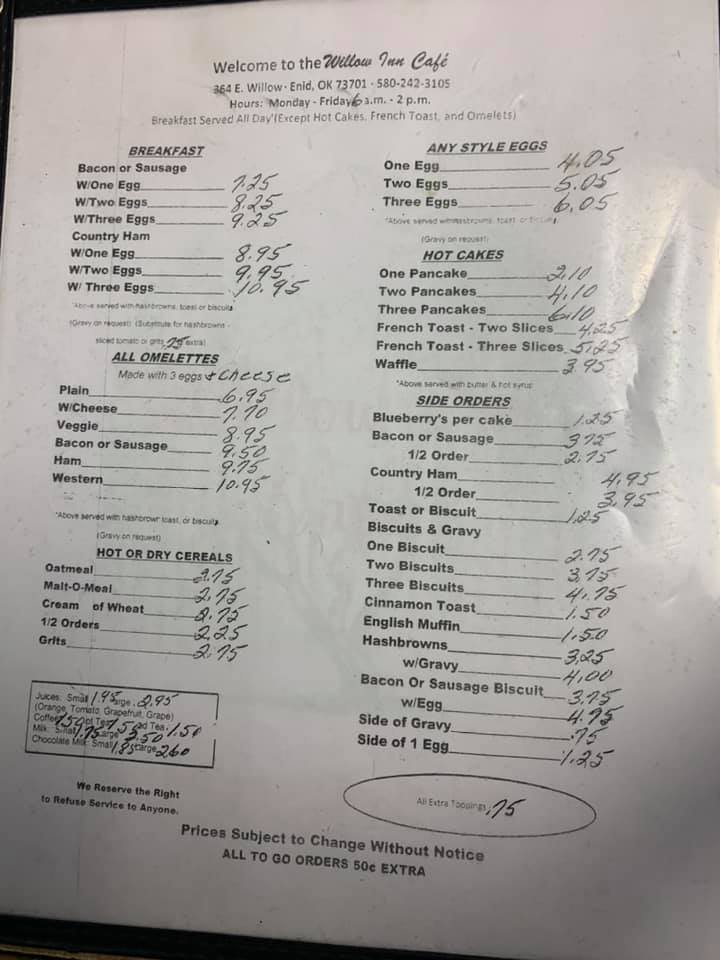 Welcome to the Willow Inn Café
364 E. Willow · Enid, OK 73701 · 580-242-3105
Hours: Monday - Friday 6 a.m. - 2 p.m.
Breakfast Served All Day (Except Hot Cakes, French Toast, and Omelets)
BREAKFAST
Bacon or Sausage
W/One Egg 7.25
W/Two Eggs 8.25
W/Three Eggs 9.25
Country Ham
W/One Egg 8.95
W/Two Eggs 9.95
W/ Three Eggs 10.95
*Above served with hashbrowns, toast or biscuits
(Gravy on request) (Substitute for hashbrowns -
sliced tomato or grits .75 extra)
ALL OMELETTES
Made with 3 eggs + cheese
Plain 6.95
W/Cheese 7.70
Veggie 8.95
Bacon or Sausage 9.50
Ham 9.75
Western 10.95
*Above served with hashbrown toast, or biscuits
(Gravy on request)
HOT OR DRY CEREALS
Oatmeal 2.75
Malt-O-Meal 2.75
Cream of Wheat 2.75
1/2 Orders 2.25
Grits 2.75
Juices: Small 1.95 arge 2.95
(Orange, Tomato, Grapefruit, Grape)
Coffee 1.50 ot Tea 1.50 ed Tea 1.50
Milk: Small 1.75 arge 2.50
Chocolate Milk: Small 1.85 arge 2.60
We Reserve the Right
to Refuse Service to Anyone.
ANY STYLE EGGS
One Egg 4.05
Two Eggs 5.05
Three Eggs 6.05
*Above served w/hashbrowns, toast or biscuits
(Gravy on request)
HOT CAKES
One Pancake 2.10
Two Pancakes 4.10
Three Pancakes 6.10
French Toast - Two Slices 4.25
French Toast - Three Slices 5.25
Waffle 3.95
*Above served with butter & hot syrup
SIDE ORDERS
Blueberry's per cake 1.25
Bacon or Sausage 3.75
1/2 Order 2.75
Country Ham 4.95
1/2 Order 3.95
Toast or Biscuit 1.25
Biscuits & Gravy
One Biscuit 2.75
Two Biscuits 3.75
Three Biscuits 4.75
Cinnamon Toast 1.50
English Muffin 1.50
Hashbrowns 3.25
w/Gravy 4.00
Bacon Or Sausage Biscuit 3.75
w/Egg 4.75
Side of Gravy .75
Side of 1 Egg 1.25
All Extra Toppings .75
Prices Subject to Change Without Notice
ALL TO GO ORDERS 50¢ EXTRA